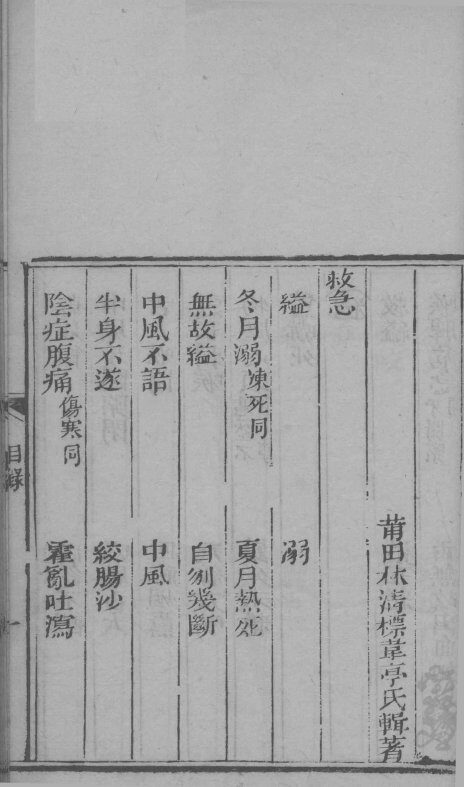 莆田林清標韋亭氏輯著
救急
縊　溺
冬月溺凍死同　夏月熱死
無故縊　自刎幾斷
中風不語　中風
半身不遂　絞腸沙
陰症腹痛傷寒同　霍亂吐瀉
目録
一